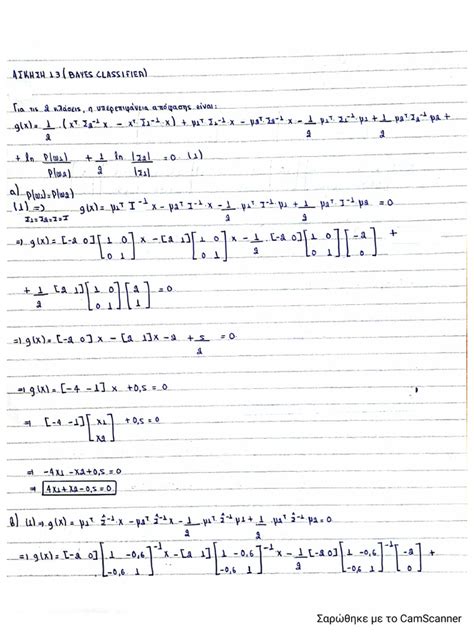 ΑΣΚΗΣΗ 1.3 (BAYES CLASSIFIER)
Για τις 2 κλάσεις, η υπερεπιφάνεια απόφασης είναι:
g(x) = 1/2 · (xᵀ Σ2⁻¹ x - xᵀ Σ1⁻¹ x) + μ1ᵀ Σ1⁻¹ x - μ2ᵀ Σ2⁻¹ x - 1/2 μ1ᵀ Σ1⁻¹ μ1 + 1/2 μ2ᵀ Σ2⁻¹ μ2 +
+ ln P(ω1)/P(ω2) + 1/2 ln |Σ2|/|Σ1| = 0 (1)
α) P(ω1) = P(ω2)
(1) ⇒ g(x) = μ1ᵀ I⁻¹ x - μ2ᵀ I⁻¹ x - 1/2 μ1ᵀ I⁻¹ μ1 + 1/2 μ2ᵀ I⁻¹ μ2 = 0
Σ1=Σ2=Σ=I
⇒ g(x) = [-2 0] [1 0; 0 1] x - [2 1] [1 0; 0 1] x - 1/2 · [-2 0] [1 0; 0 1] [-2; 0] +
+ 1/2 [2 1] [1 0; 0 1] [2; 1] = 0
⇒ g(x) = [-2 0] x - [2 1] x - 2 + 5/2 = 0
⇒ g(x) = [-4 -1] x + 0,5 = 0
⇒ [-4 -1] [x1; x2] + 0,5 = 0
⇒ -4x1 - x2 + 0,5 = 0
⇒ 4x1 + x2 - 0,5 = 0
β) (1) ⇒ g(x) = μ1ᵀ Σ⁻¹ x - μ2ᵀ Σ⁻¹ x - 1/2 μ1ᵀ Σ⁻¹ μ1 + 1/2 μ2ᵀ Σ⁻¹ μ2 = 0
⇒ g(x) = [-2 0] [1 -0,6; -0,6 1]⁻¹ x - [2 1] [1 -0,6; -0,6 1]⁻¹ x - 1/2 [-2 0] [1 -0,6; -0,6 1]⁻¹ [-2; 0] +
Σαρώθηκε με το CamScanner